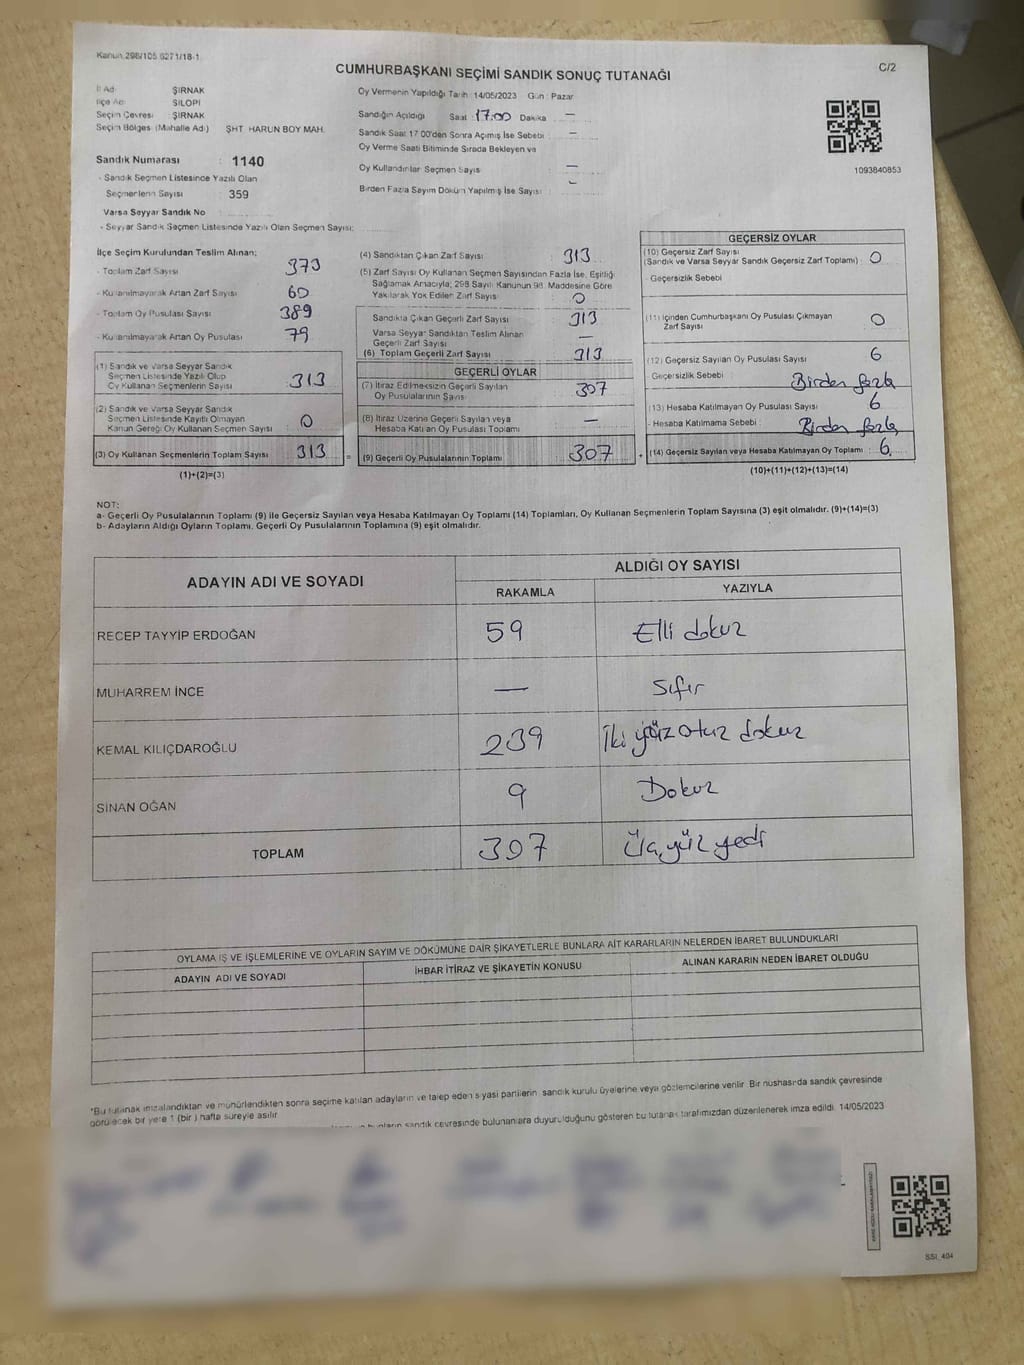 Kanun 298/105 6271/18-1
CUMHURBAŞKANI SEÇİMİ SANDIK SONUÇ TUTANAĞI
C/2
İl Adı ŞIRNAK
İlçe Adı SİLOPİ
Seçim Çevresi ŞIRNAK
Seçim Bölgesi (Mahalle Adı) ŞHT HARUN BOY MAH.
Oy Vermenin Yapıldığı Tarih : 14/05/2023 Gün : Pazar
Sandığın Açıldığı Saat : 17.00 Dakika —
Sandık Saat 17 00'den Sonra Açılmış İse Sebebi : —
Oy Verme Saati Bitiminde Sırada Bekleyen ve
Oy Kullandırılan Seçmen Sayısı —
Birden Fazla Sayım Döküm Yapılmış İse Sayısı : —
1093840853
Sandık Numarası : 1140
- Sandık Seçmen Listesinde Yazılı Olan
Seçmenlerin Sayısı : 359
Varsa Seyyar Sandık No :
- Seyyar Sandık Seçmen Listesinde Yazılı Olan Seçmen Sayısı:
İlçe Seçim Kurulundan Teslim Alınan;
- Toplam Zarf Sayısı 373
- Kullanılmayarak Artan Zarf Sayısı 60
- Toplam Oy Pusulası Sayısı 389
- Kullanılmayarak Artan Oy Pusulası 79
(1) Sandık ve Varsa Seyyar Sandık
Seçmen Listesinde Yazılı Olup
Oy Kullanan Seçmenlerin Sayısı : 313
(2) Sandık ve Varsa Seyyar Sandık
Seçmen Listesinde Kayıtlı Olmayan
Kanun Gereği Oy Kullanan Seçmen Sayısı : 0
(3) Oy Kullanan Seçmenlerin Toplam Sayısı : 313
(1)+(2)=(3)
(4) Sandıktan Çıkan Zarf Sayısı : 313
(5) Zarf Sayısı Oy Kullanan Seçmen Sayısından Fazla İse, Eşitliği
Sağlamak Amacıyla; 298 Sayılı Kanunun 98. Maddesine Göre
Yakılarak Yok Edilen Zarf Sayısı 0
Sandıkta Çıkan Geçerli Zarf Sayısı : 313
Varsa Seyyar Sandıktan Teslim Alınan
Geçerli Zarf Sayısı —
(6) Toplam Geçerli Zarf Sayısı : 313
GEÇERLİ OYLAR
(7) İtiraz Edilmeksizin Geçerli Sayılan
Oy Pusulalarının Sayısı : 307
(8) İtiraz Üzerine Geçerli Sayılan veya
Hesaba Katılan Oy Pusulası Toplamı : —
= (9) Geçerli Oy Pusulalarının Toplamı : 307
GEÇERSİZ OYLAR
(10) Geçersiz Zarf Sayısı
(Sandık ve Varsa Seyyar Sandık Geçersiz Zarf Toplamı) : 0
- Geçersizlik Sebebi
(11) İçinden Cumhurbaşkanı Oy Pusulası Çıkmayan
Zarf Sayısı 0
(12) Geçersiz Sayılan Oy Pusulası Sayısı : 6
- Geçersizlik Sebebi : Birden fazla
(13) Hesaba Katılmayan Oy Pusulası Sayısı : 6
- Hesaba Katılmama Sebebi : Birden fazla
+ (14) Geçersiz Sayılan veya Hesaba Katılmayan Oy Toplamı : 6
(10)+(11)+(12)+(13)=(14)
NOT:
a- Geçerli Oy Pusulalarının Toplamı (9) ile Geçersiz Sayılan veya Hesaba Katılmayan Oy Toplamı (14) Toplamları, Oy Kullanan Seçmenlerin Toplam Sayısına (3) eşit olmalıdır. (9)+(14)=(3)
b- Adayların Aldığı Oyların Toplamı, Geçerli Oy Pusulalarının Toplamına (9) eşit olmalıdır.
ADAYIN ADI VE SOYADI
ALDIĞI OY SAYISI
RAKAMLA YAZIYLA
RECEP TAYYİP ERDOĞAN 59 Elli dokuz
MUHARREM İNCE — Sıfır
KEMAL KILIÇDAROĞLU 239 İki yüz otuz dokuz
SİNAN OĞAN 9 Dokuz
TOPLAM 307 Üç yüz yedi
OYLAMA İŞ VE İŞLEMLERİNE VE OYLARIN SAYIM VE DÖKÜMÜNE DAİR ŞİKAYETLERLE BUNLARA AİT KARARLARIN NELERDEN İBARET BULUNDUKLARI
ADAYIN ADI VE SOYADI İHBAR İTİRAZ VE ŞİKAYETİN KONUSU ALINAN KARARIN NEDEN İBARET OLDUĞU
*Bu tutanak imzalandıktan ve mühürlendikten sonra seçime katılan adayların ve talep eden siyasi partilerin sandık kurulu üyelerine veya gözlemcilerine verilir. Bir nüshası da sandık çevresinde
görülecek bir yere 1 (bir) hafta süreyle asılır.
bunların sandık çevresinde bulunanlara duyurulduğunu gösteren bu tutanak tarafımızdan düzenlenerek imza edildi. 14/05/2023
SSI_404